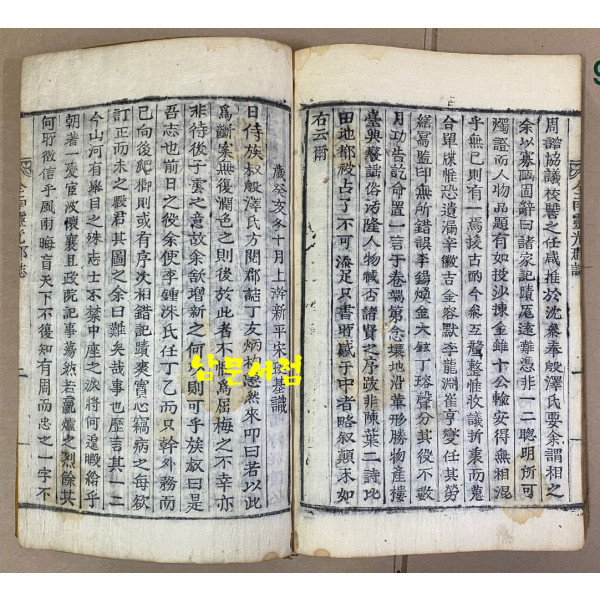 周諮協議校讐之任咸推於沈蔡奉殷澤氏要余謂相之
余以寡陋固辭曰諸家記蹟荒遠難憑非一二聰明所可
獨證而人物品題有如披沙揀金雖十公輸安得無相混
乎無已則有一焉援古酌今叅互整惟收議折衷而蒐
合單牒惟恐遺漏辛徽吉金容默李龍淵崔享燮任其勞
繕寫監印無所錯誤李錫煥金大鉉丁瑢聲分其役不數
月功告訖命置一言于卷端第念壤地沿革形勝物産樓
臺興廢謠俗汚隆人物臧否諸賢之序跋非陳葉二詩比
田地都被占了不可添足只書所感于中者略叙顚末如
右云爾
歲癸亥冬十月上澣新平宋 基識
日侍族叔殷澤氏方閱郡誌丁友炳 然來叩曰若以此
爲斷案無復潤色之則後於此者不 爲屈梅之不幸亦
非待後子雲之意故余欲增新之何 則可乎族叔曰是
吾志也前日之役余使李鍾洙氏任丁乙而只幹外務而
已向後爬櫛則或有序次相錯記蹟爽實心竊病之每欲
訂正而未之暇君其圖之余曰難矣哉事也歷言其一二
今山河有異目之殊志士不禁中座之淚將何遑暇給乎
朝著一變宦波懷襄且政院記事蕩然若 爐之烈餘其
何所徵信乎風雨晦盲天下不復知有周而忠之一字不
全南靈光郡誌
全南靈光郡誌
삼문서점